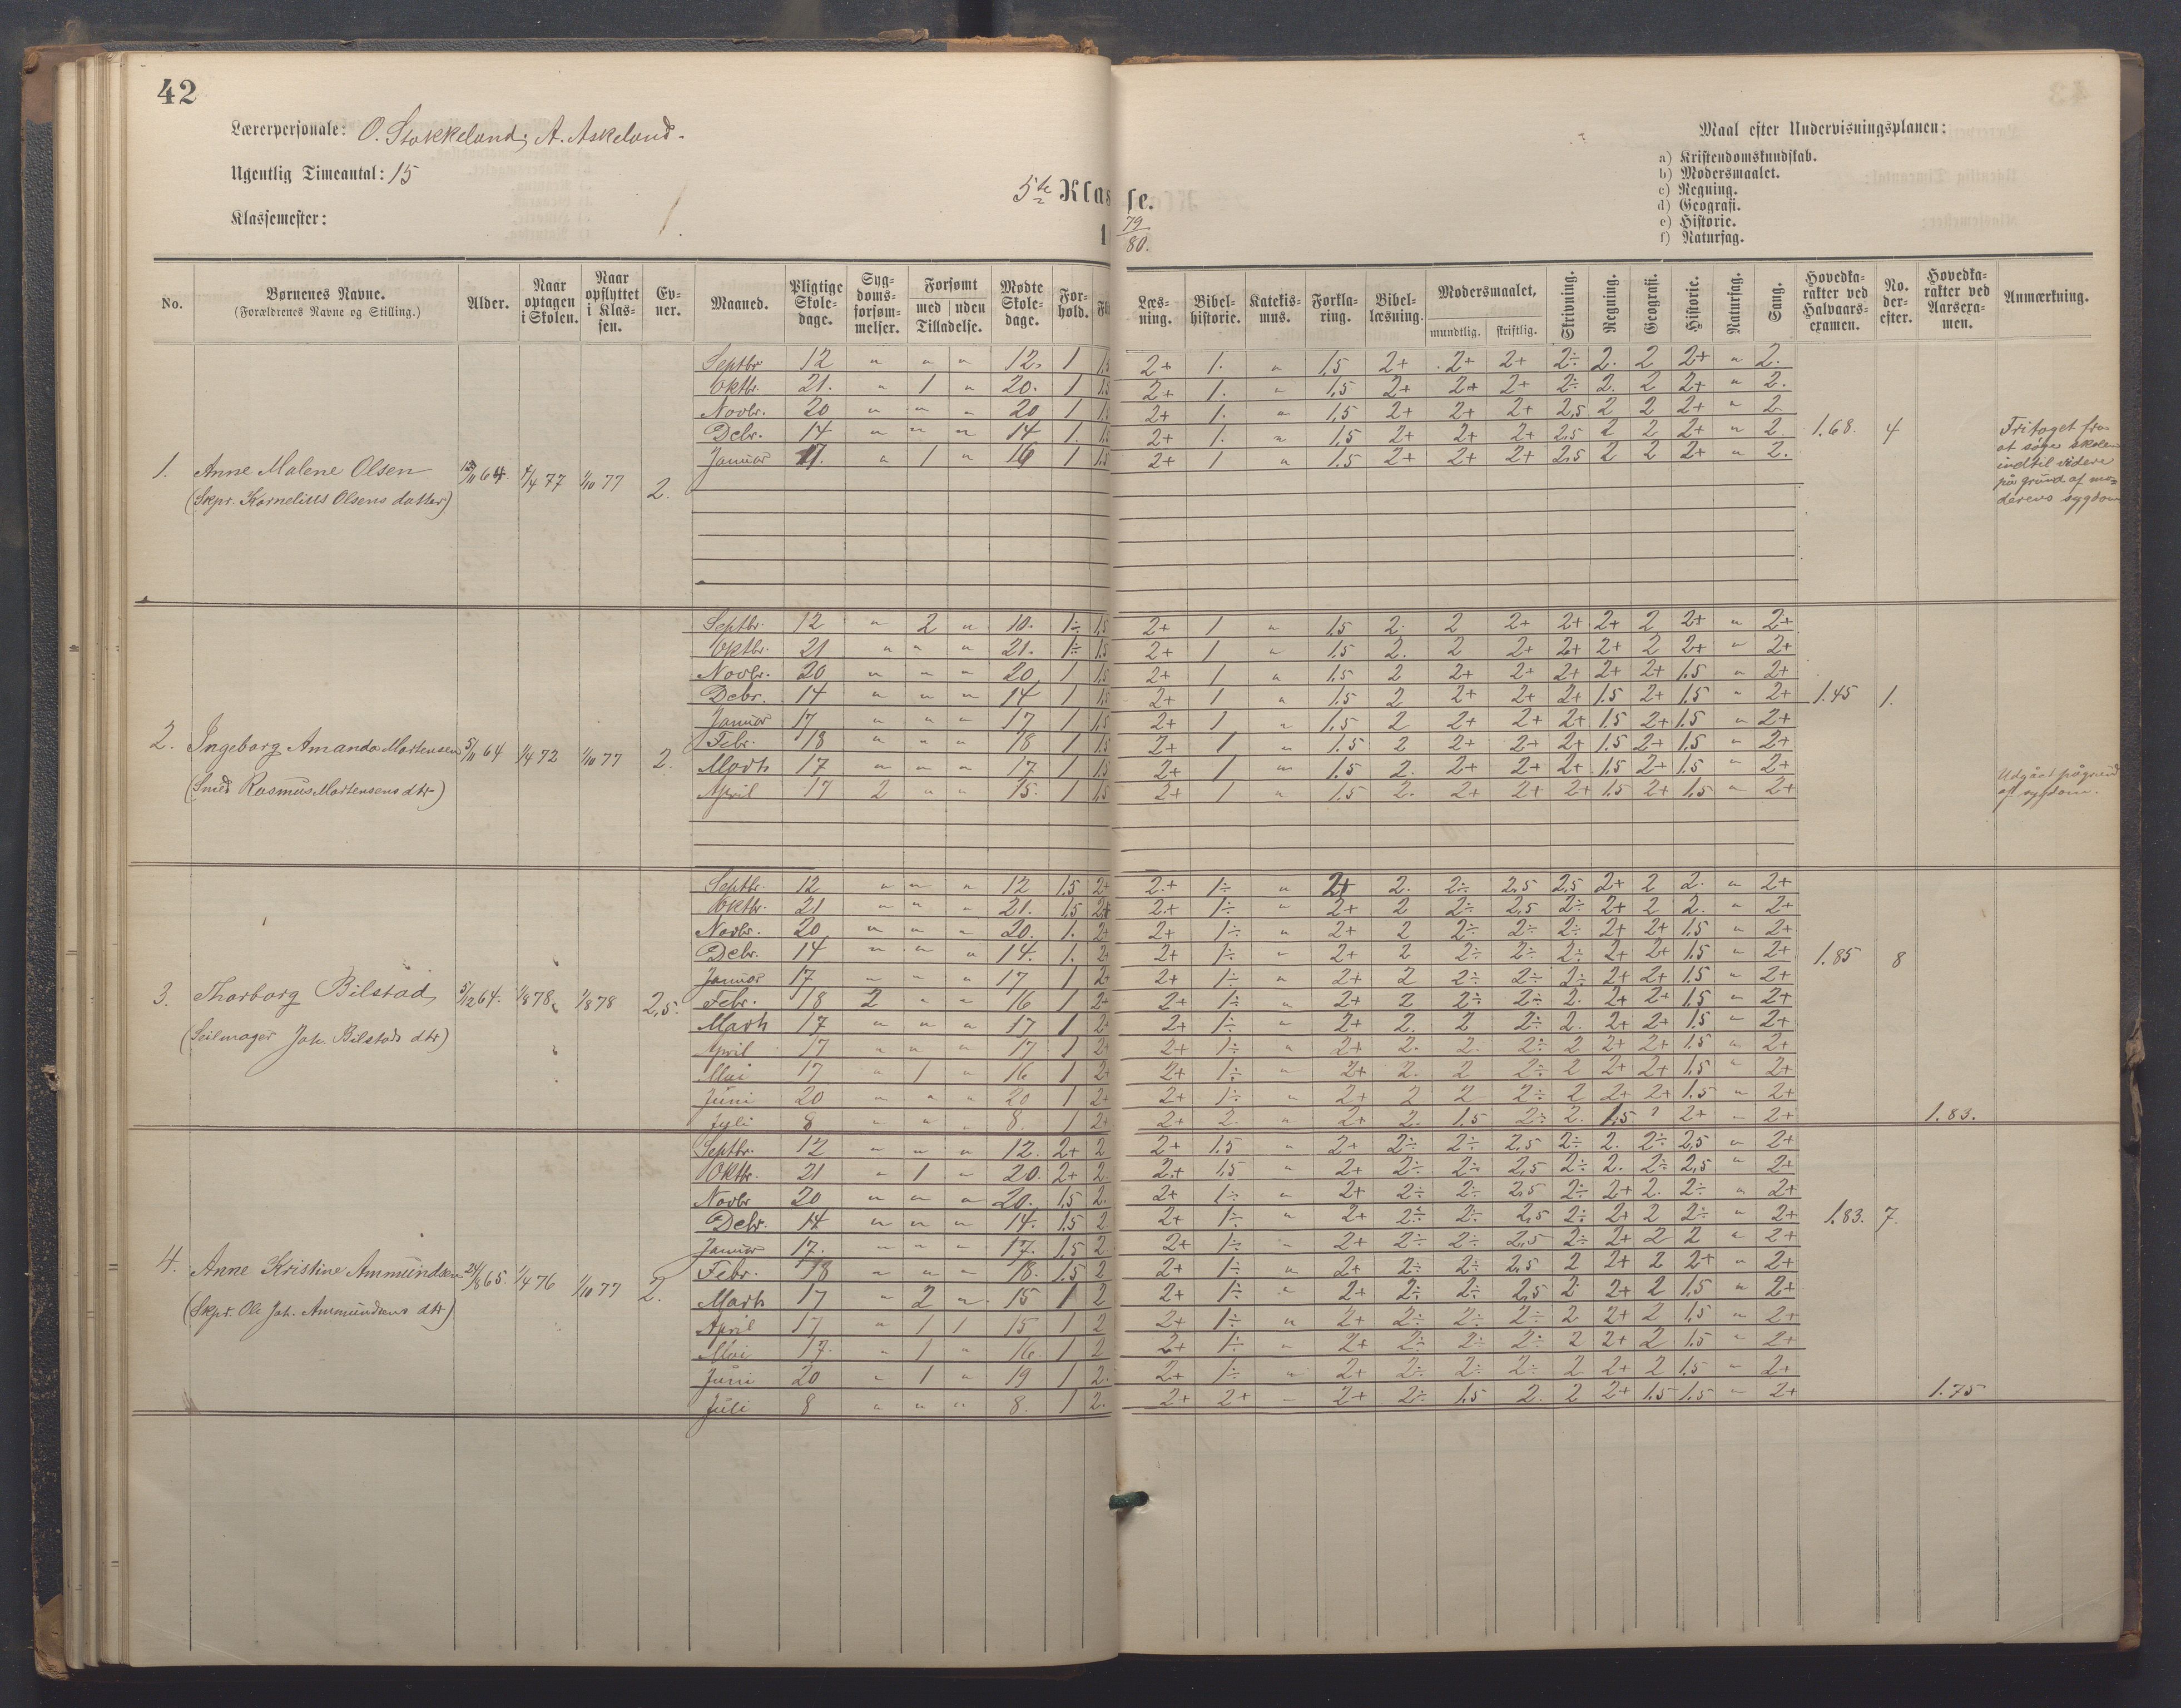 42
Lærerpersonale: O. Stokkeland, A. Askeland.
Ugentlig Timeantal: 15
Klassemester:
5te Klasse.
79
80.
Maal efter Undervisningsplanen:
a) Kristendomskundskab.
b) Modersmaalet.
c) Regning.
d) Geografi.
e) Historie.
f) Naturfag.
No. | Børnenes Navne. (Forældrenes Navne og Stilling.) | Alder. | Naar optagen i Skolen. | Naar opflyttet i Klassen. | Evner. | Maaned. | Pligtige Skoledage. | Sygdomsforsømmelser. | Forsømt med uden Tilladelse. | Mødte Skoledage. | Forhold. | Fl | Læsning. | Bibelhistorie. | Katekismus. | Forklaring. | Bibellæsning. | Modersmaalet, mundtlig. skriftlig. | Skrivning. | Regning. | Geografi. | Historie. | Naturfag. | Sang. | Hovedkarakter ved Halvaarsexamen. | No. derefter. | Hovedkarakter ved Aarsexamen. | Anmærkning.
1. Anne Malene Olsen 64. 1/4 77 1/10 77 2.
(Skpr. Kornelius Olsens datter)
Septbr 12 " " " 12. 1 1,5 2+ 1. " 1,5 2+ 2+ 2+ 2÷ 2. 2 2+ " 2.
Oktbr. 21. " 1 " 20. 1 1,5 2+ 1. " 1,5 2+ 2+ 2+ 2÷ 2. 2 2+ " 2.
Novbr. 20 " " " 20 1 1,5 2+ 1. " 1,5 2+ 2+ 2+ 2,5 2 2 2+ " 2
Debr. 14 " " " 14 1. 1,5 2+ 1. " 1,5 2+ 2+ 2+ 2,5 2 2 2+ " 2
Januar 17. " 1 " 16 1 1,5 2+ 1 " 1.5 2+ 2+ 2+ 2,5 2 2 2+ " 2.
1.68. 4
Fritaget fra
at søge skolen
indtil videre
på grund af mo-
derens sygdom
2. Ingeborg Amanda Mortensen 5/11 64 1/4 72 1/10 77 2.
(Smed Rasmus Mortensens dtr)
Septbr. 12 " 2 " 10. 1÷ 1,5 2+ 1 " 1,5 2. 2 2+ 2+ 2+ 2 2+ " 2+
Oktbr. 21 " " " 21. 1÷ 1,5 2+ 1 " 1,5 2. 2 2+ 2+ 2+ 2 2+ " 2+
Novbr. 20 " " " 20 1 1,5 2+ 1 " 1,5 2 2+ 2+ 2+ 2+ 2+ 1,5 " 2+
Debr. 14 " " " 14 1 1,5 2+ 1 " 1,5 2 2+ 2+ 2+ 1.5 2+ 1,5 " 2+
Januar 17 " " " 17 1 1,5 2+ 1 " 1,5 2 2+ 2+ 2+ 1,5 2+ 1,5 " 2+
Febr. 18 " " " 18 1 1,5 2+ 1 " 1.5 2 2+ 2+ 2+ 1,5 2+ 1,5 " 2+
Marts 17 " " " 17 1 1,5 2+ 1 " 1.5 2. 2+ 2+ 2+ 1,5 2+ 1,5 " 2+
April 17 2 " " 15. 1 1,5 2+ 1 " 1,5 2. 2+ 2+ 2+ 1,5 2+ 1,5 " 2+
1.45 1.
Udgået på grund
af sygdom.
3. Thorborg Bilstad 5/12 64. 1/8 78 1/8 78 2,5.
(Seilmager Joh. Bilstads dtr)
Septbr. 12 " " " 12 1,5 2+ 2+ 1÷ " 2+ 2. 2÷ 2,5 2,5 2+ 2 2. " 2+
Oktbr. 21 " " " 21. 1,5 2+ 2+ 1÷ " 2+ 2 2÷ 2,5 2÷ 2+ 2 2. " 2+
Novbr. 20 " " " 20. 1. 2+ 2+ 1÷ " 2+ 2 2÷ 2÷ 2÷ 2+ 2+ 1,5 " 2+
Debr. 14 " " " 14. 1. 2+ 2+ 1÷ " 2+ 2 2÷ 2÷ 2÷ 2+ 2+ 1,5 " 2+
Januar 17 " " " 17 1 2+ 2+ 1÷ " 2+ 2 2÷ 2÷ 2÷ 2+ 2+ 1,5 " 2+
Febr. 18 2 " " 16 1 2+ 2+ 1÷ " 2+ 2 2÷ 2÷ 2. 2+ 2+ 1,5 " 2+
Marts 17 " " " 17 1 2+ 2+ 1÷ " 2+ 2. 2 2÷ 2. 2+ 2+ 1,5 " 2+
April 17 " " " 17 1 2+ 2+ 1÷ " 2+ 2. 2. 2÷ 2 2+ 2+ 1,5 " 2+
Mai 17 " 1 " 16 1 2+ 2+ 1÷ " 2+ 2. 2 2÷ 2 2+ 2+ 1,5 " 2+
Juni 20 " " " 20 1 2+ 2+ 1÷ " 2+ 2 2 2÷ 2 2+ 2+ 1.5 " 2+
Jyli 8 " " " 8. 1 2+ 2+ 2. " 2+ 2. 1.5 2÷ 2. 1,5 2 2+ " 2+
1.85 8
1.83.
4. Anne Kristine Ammundsen 24/8 65. 1/4 76 1/10 77 2.
(Skpr. Ole Joh. Ammundsens dtr)
Septbr. 12 " " " 12. 2+ 2 2+ 1.5 " 2+ 2÷ 2÷ 2,5 2÷ 2. 2÷ 2,5 " 2+
Oktbr. 21 " 1 " 20. 2+ 2. 2+ 1,5 " 2+ 2÷ 2÷ 2,5 2÷ 2. 2÷ 2,5 " 2+
Novbr 20 " " " 20. 1,5 2. 2+ 1÷ " 2+ 2÷ 2÷ 2,5 2÷ 2+ 2. 2÷ " 2+
Debr. 14 " " " 14. 1,5 2 2+ 1÷ " 2+ 2÷ 2÷ 2,5 2÷ 2+ 2 2÷ " 2+
Januar 17. " " " 17. 1,5 2 2+ 1÷ " 2+ 2÷ 2÷ 2,5 2÷ 2+ 2 2 " 2+
Febr. 18 " " " 18. 1,5 2 2+ 1÷ " 2+ 2÷ 2÷ 2,5 2 2+ 2 2+ " 2+
Marts 17 " 2 " 15 1 2 2+ 1÷ " 2+ 2÷ 2÷ 2,5 2 2+ 2 1,5 " 2+
April 17 " 1 1 15 1 2 2+ 1÷ " 2+ 2÷ 2÷ 2÷ 2 2+ 2 1,5 " 2+
Mai 17. " 1 " 16. 1 2 2+ 1÷ " 2+ 2÷ 2÷ 2÷ 2 2+ 2 1.5 " 2+
Juni 20 " 1 " 19 1 2. 2+ 1÷ " 2+ 2÷ 2÷ 2÷ 2 2+ 2 1,5 " 2+
Juli 8 " " " 8. 1 2. 2+ 2+ " 2+ 2÷ 1.5 2. 2 2+ 1.5 1.5 " 2+
1.83. 7.
1.75